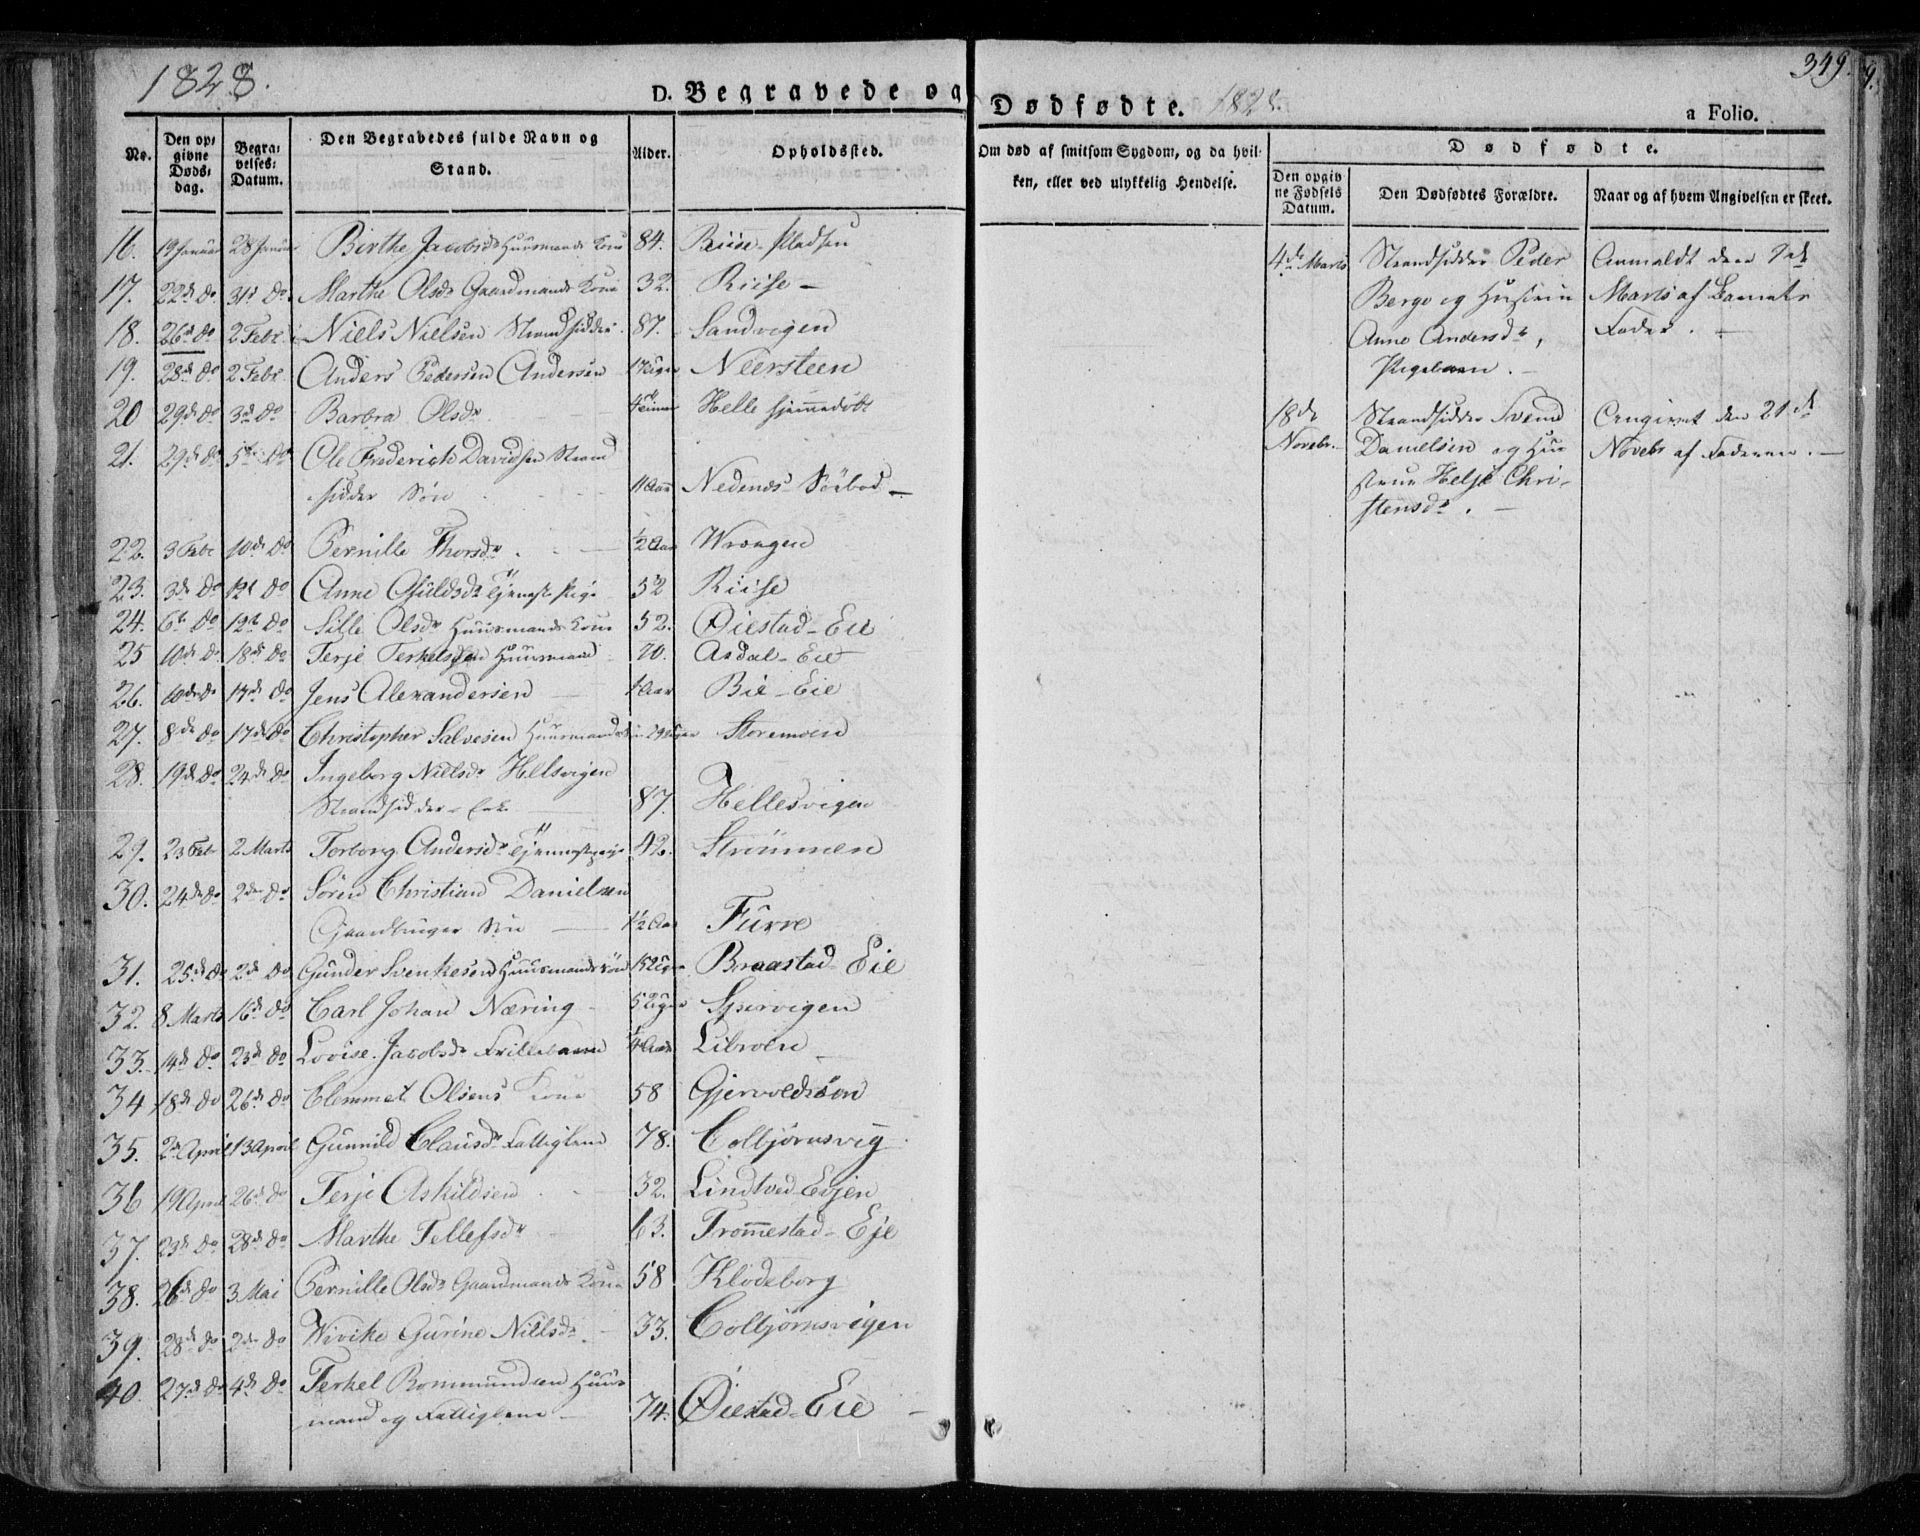 1828.
D. Begravede og
No.
Den opgivne Dødsdag.
Begravelses: Datum.
Den Begravedes fulde Navn og Stand.
Alder.
Opholdssted.
16. 19 Januar 28 Januar Birthe Jacobsdr Huusmands Kone 84. Riise-Pladsen
17. 22de do 31te do Marthe Olsdr Gaardmands Kone 32. Riise
18. 26de do 2 Febr. Niels Nielsen Strandsidder 87. Sandvigen
19. 28de do 2 Febr. Anders Pedersen Andersen Uger Neersteen
20 29de do 3de do Barbra Olsdr Helle hjemmedøbt
21. 29de do 5te do Ole Frederich Davidsen Strand
sidder Søn 11 Aar Nedenes Sørbod
22. 3 Febr 10de do Pernille Thorsdr ½ Aar Wrengen
23. 3de do 12te do Anne Tjeneste Pige 52 Riise
24. 6te do 12te do Sille Olsdr Huusmands Kone 52. Øiestad-Eie
25 10de do 18de do Terje Terkelsen Huusmand 70. Asdal-Eie
26. 10de do 17de do Jens Alexandersen Aar Bie-Eie
27. 8de do 17de do Christopher Salvesen Huusmands Uger Storemoen
28. 19de do 24de do Ingeborg Nielsdr Hellevigen
Strandsidder-Enke 87. Hellesvigen
29. 23 Febr 2 Marts Torborg Andersdr Tjenestepige 42. Strømmen
30. 24de do 2den do Søren Christian Danielsen
Gaardbruger Søn 1½ Aar Furre
31. 25de do 2de do Gunder Svenkesen Huusmands Søn 15 Uger Braastad Eie
32. 8 Marts 16de do Carl Johan Næring 5 Uger Spervigen
33. 14de do 23de do Lovise Jacobsdr Frillebarn ¼ Aar Libroen
34 18de do 26de do Clemmet Olsens Kone 58 Gjervoldsøen
35. 2de April 13 April Gunnild Clausdr Fattiglem 78. Colbjørnsvig
36 19 April 26de do Terje Askildsen 32. Lindtved Eyen
37. 23de do 28de do Marthe Tellefsdr 63. Trommestad-Eje
38. 26de do 3 Mai Pernille Olsdr Gaardmands Kone 58 Klodeborg
39. 28de do 2den do Wivike Gurine Nielsdr 33. Colbjørnsvigen
40. 27de do 4de do Terkel Rommundsen Huus
mand og Fattiglem 74. Øiestad-Eie
349.
9.
Dødfødte. 1828.
a Folio.
Om død af smitsom Sygdom, og da hvilken, eller ved ulykkelig Hendelse.
Dødfødte.
Den opgivne Fødsels Datum.
Den Dødfødtes Forældre.
Naar og af hvem Angivelsen er skeet.
4de Marts Strandsidder Peder Anmeldt den 9de
Berge og Hustrue Marts af Barnets
Anne Andersdr, Fader.
Pigebarn.
18de Strandsidder Svend Angivet den 21de
Novebr. Danielsen og Hu- Novebr af Faderen.
strue Helje Chri-
stensdr.